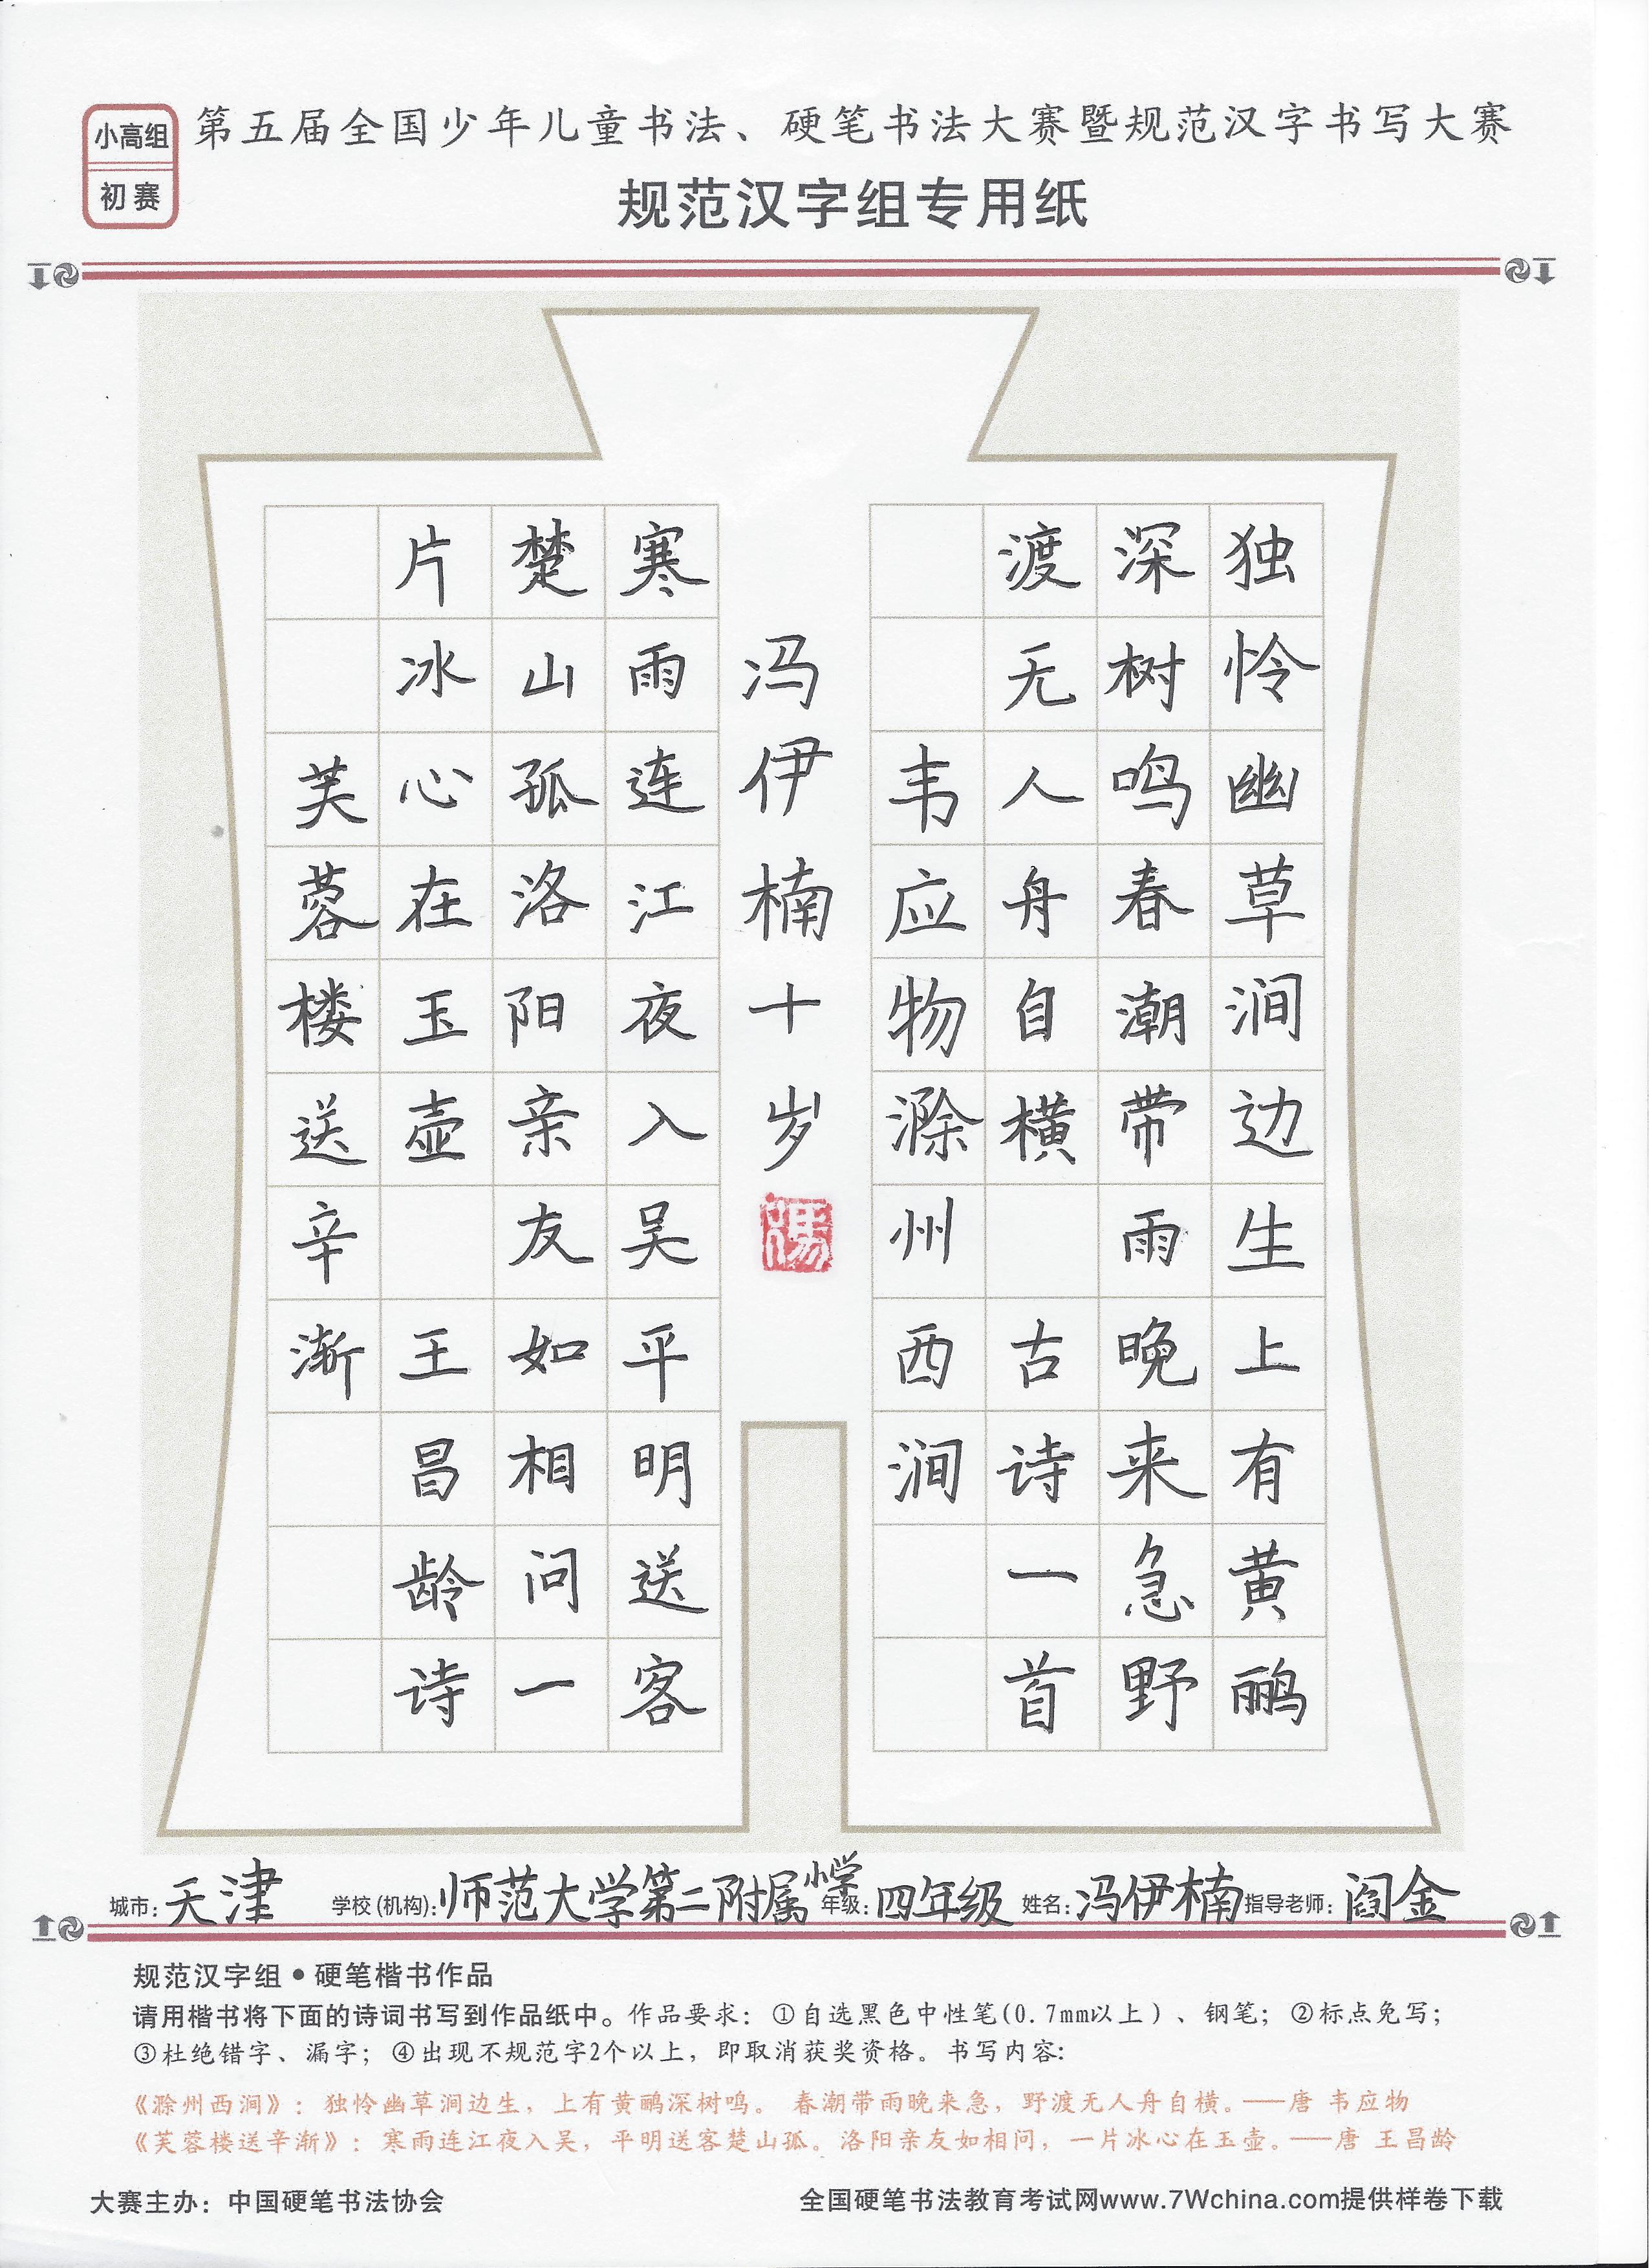 小高组
初赛
第五届全国少年儿童书法、硬笔书法大赛暨规范汉字书写大赛
规范汉字组专用纸
独怜幽草涧边生上有黄鹂
深树鸣春潮带雨晚来急野
渡无人舟自横 古诗一首
韦应物滁州西涧
冯伊楠十岁
冯
寒雨连江夜入吴平明送客
楚山孤洛阳亲友如相问一
片冰心在玉壶 王昌龄诗
芙蓉楼送辛渐
城市：天津 学校(机构)：师范大学第二附属小学 年级：四年级 姓名：冯伊楠 指导老师：阎金
规范汉字组●硬笔楷书作品
请用楷书将下面的诗词书写到作品纸中。作品要求：①自选黑色中性笔(0.7mm以上）、钢笔；②标点免写；
③杜绝错字、漏字；④出现不规范字2个以上，即取消获奖资格。书写内容：
《滁州西涧》：独怜幽草涧边生，上有黄鹂深树鸣。 春潮带雨晚来急，野渡无人舟自横。——唐 韦应物
《芙蓉楼送辛渐》：寒雨连江夜入吴，平明送客楚山孤。洛阳亲友如相问，一片冰心在玉壶。——唐 王昌龄
大赛主办：中国硬笔书法协会
全国硬笔书法教育考试网www.7Wchina.com提供样卷下载